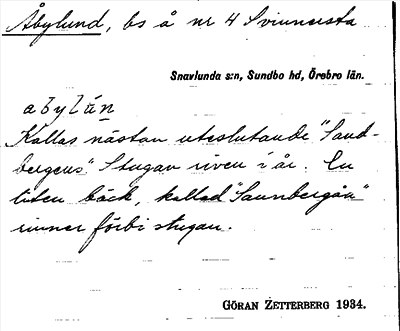 Åbylund, bs å nr 4 Svinnersta
Snavlunda s:n, Sundbo hd, Örebro län.
Kallas nästan uteslutande "Sand-
bergens". Stugan riven i år. En
liten bäck, kallad "Saunbergåa"
rinner förbi stugan.
GÖRAN ZETTERBERG 1934.